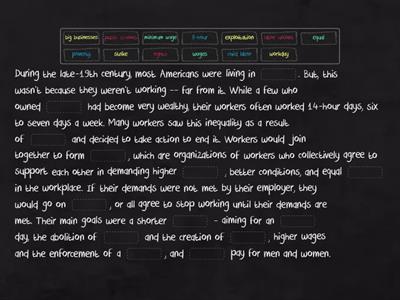 big businesses public schools minimum wage 8-hour exploitation labor unions equal
poverty strike rights wages child labor workday
During the late-19th century, most Americans were living in . But, this
wasn't because they weren't working -- far from it. While a few who
owned had become very wealthy, their workers often worked 14-hour days, six
to seven days a week. Many workers saw this inequality as a result
of and decided to take action to end it. Workers would join
together to form , which are organizations of workers who collectively agree to
support each other in demanding higher , better conditions, and equal
in the workplace. If their demands were not met by their employer, they
would go on , or all agree to stop working until their demands are
met. Their main goals were a shorter - aiming for an
day, the abolition of and the creation of , higher wages
and the enforcement of a , and pay for men and women.